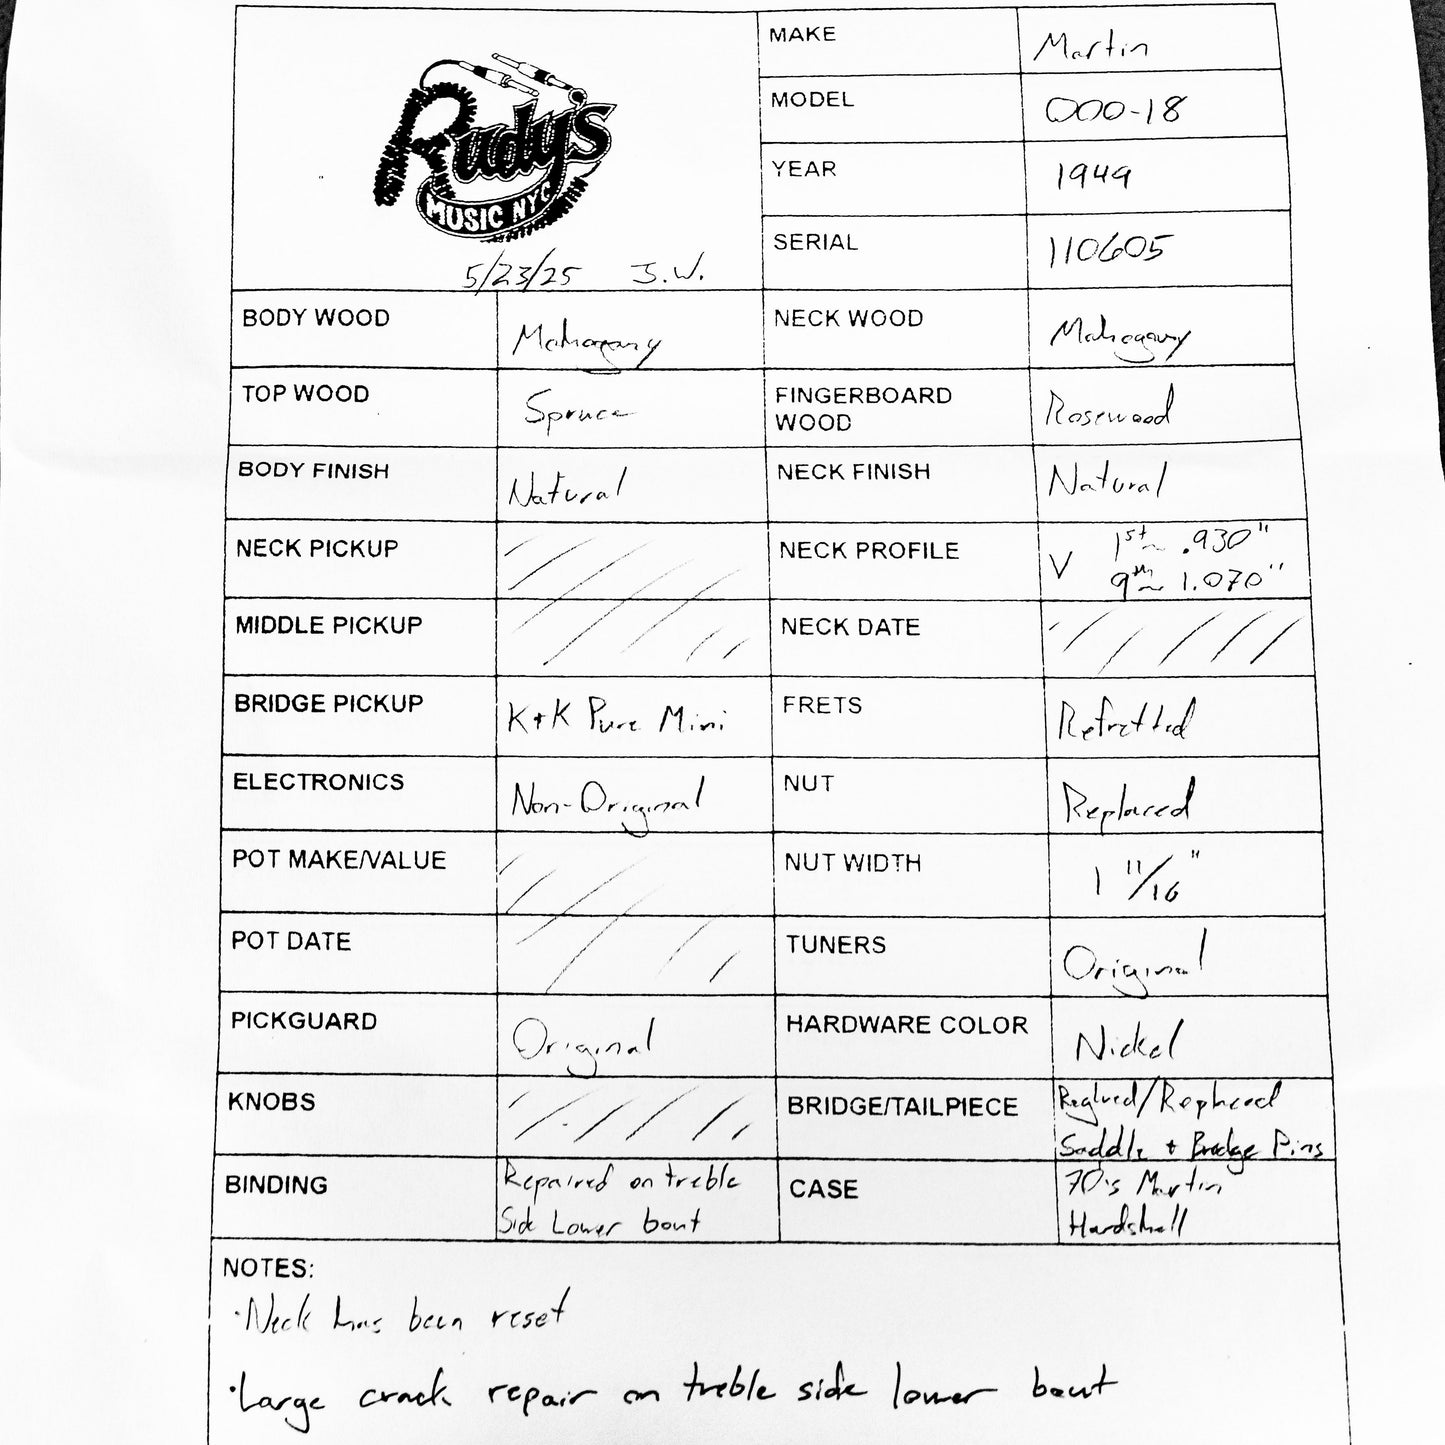 Rudy's
MUSIC NYC
5/23/25 J.W.
MAKE Martin
MODEL 000-18
YEAR 1949
SERIAL 110605
BODY WOOD Mahogany NECK WOOD Mahogany
TOP WOOD Spruce FINGERBOARD
WOOD Rosewood
BODY FINISH Natural NECK FINISH Natural
NECK PICKUP NECK PROFILE V 1st ~ .930"
9th ~ 1.070"
MIDDLE PICKUP NECK DATE
BRIDGE PICKUP K+K Pure Mini FRETS Refretted
ELECTRONICS Non-Original NUT Replaced
POT MAKE/VALUE NUT WIDTH 1 11/16"
POT DATE TUNERS Original
PICKGUARD Original HARDWARE COLOR Nickel
KNOBS BRIDGE/TAILPIECE Reglued/Replaced
Saddle + Bridge Pins
BINDING Repaired on treble
Side Lower bout
CASE 70's Martin
Hardshell
NOTES:
·Neck has been reset
·Large crack repair on treble side lower bout